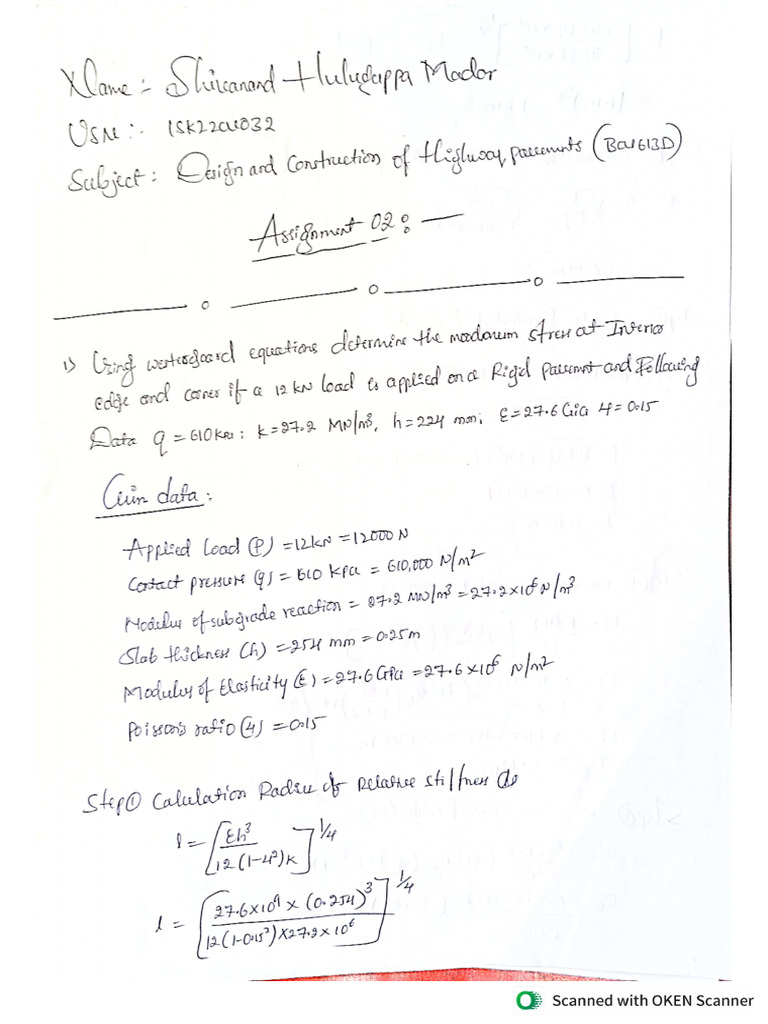 Name :- Shivanand Hulugappa Mador
USN :- 1SK22CV032
Subject : Design and Construction of Highway pavements (BCV613D)
Assignment 02 : —
1) Using westergaard equations determine the maximum stress at Interior
edge and corner if a 12 kN load is applied on a Rigid pavement and Following
Data q = 610 kPa ; k = 27.2 MN/m³, h = 224 mm; E = 27.6 Gia 4 = 0.15
Given data :
Applied Load (P) = 12kN = 12000 N
Contact pressure (q) = 610 kPa = 610,000 N/m²
Modulus of subgrade reaction = 27.2 MN/m³ = 27.2 × 10⁶ N/m³
Slab thickness (h) = 254 mm = 0.25m
Modulus of Elasticity (E) = 27.6 GPa = 27.6 × 10⁶ N/m²
Poisson's ratio (4) = 0.15
Step ① Calculation Radius of Relative stiffness
l = [Eh³ / 12(1-4²)k]^1/4
l = [27.6×10⁹ × (0.254)³ / 12(1-0.15²) × 27.2 × 10⁶]^1/4
Scanned with OKEN Scanner